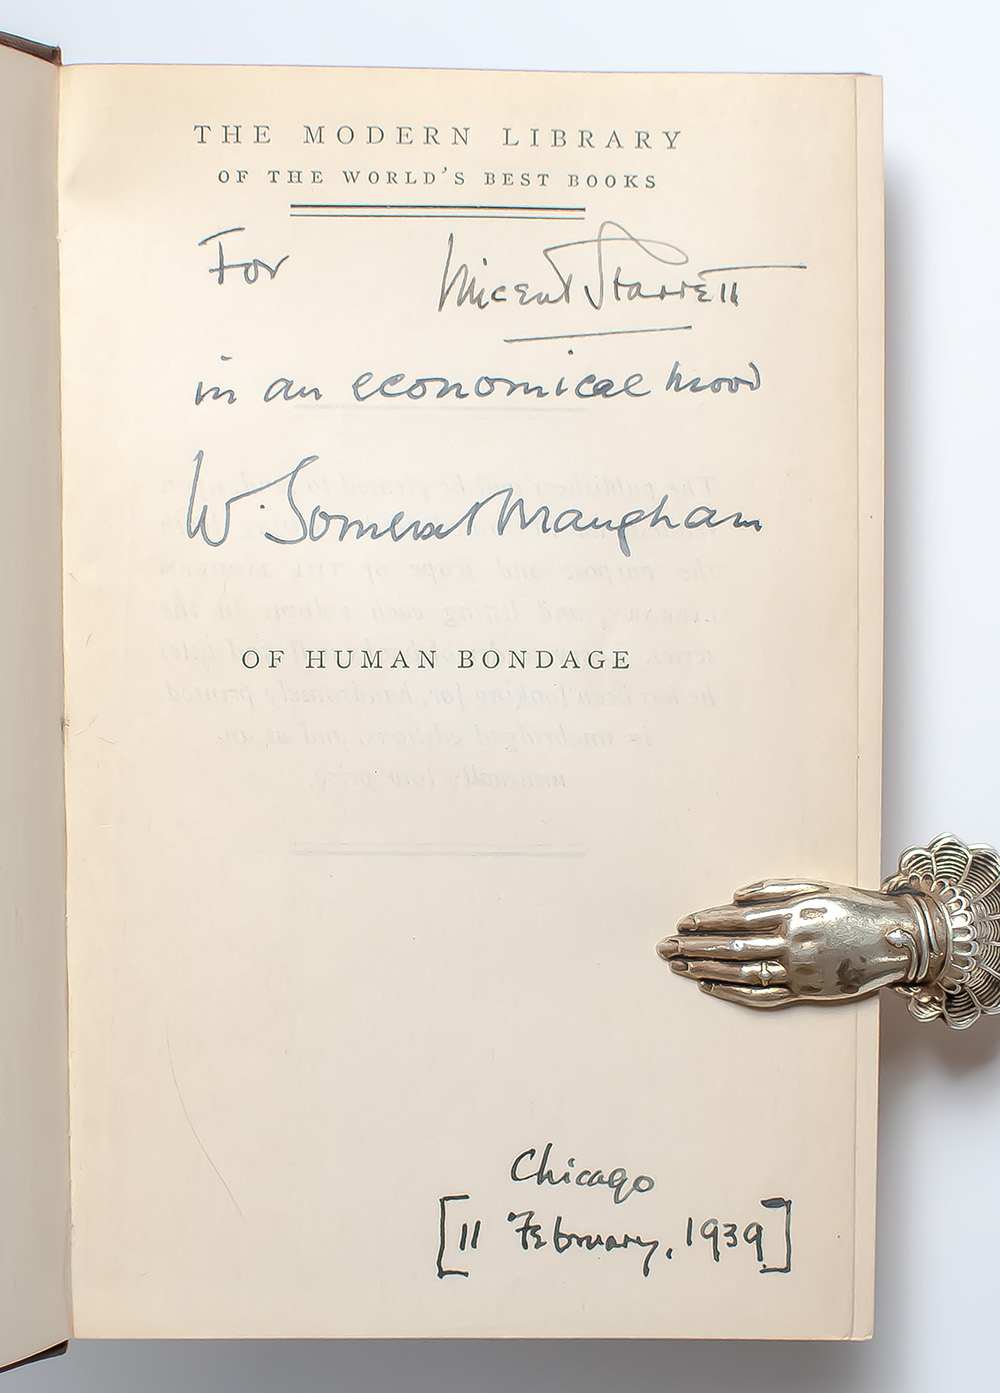 THE MODERN LIBRARY
OF THE WORLD'S BEST BOOKS
For Vincent Starrett
in an economical mood
W. Somerset Maugham
OF HUMAN BONDAGE
Chicago
[11 February, 1939]